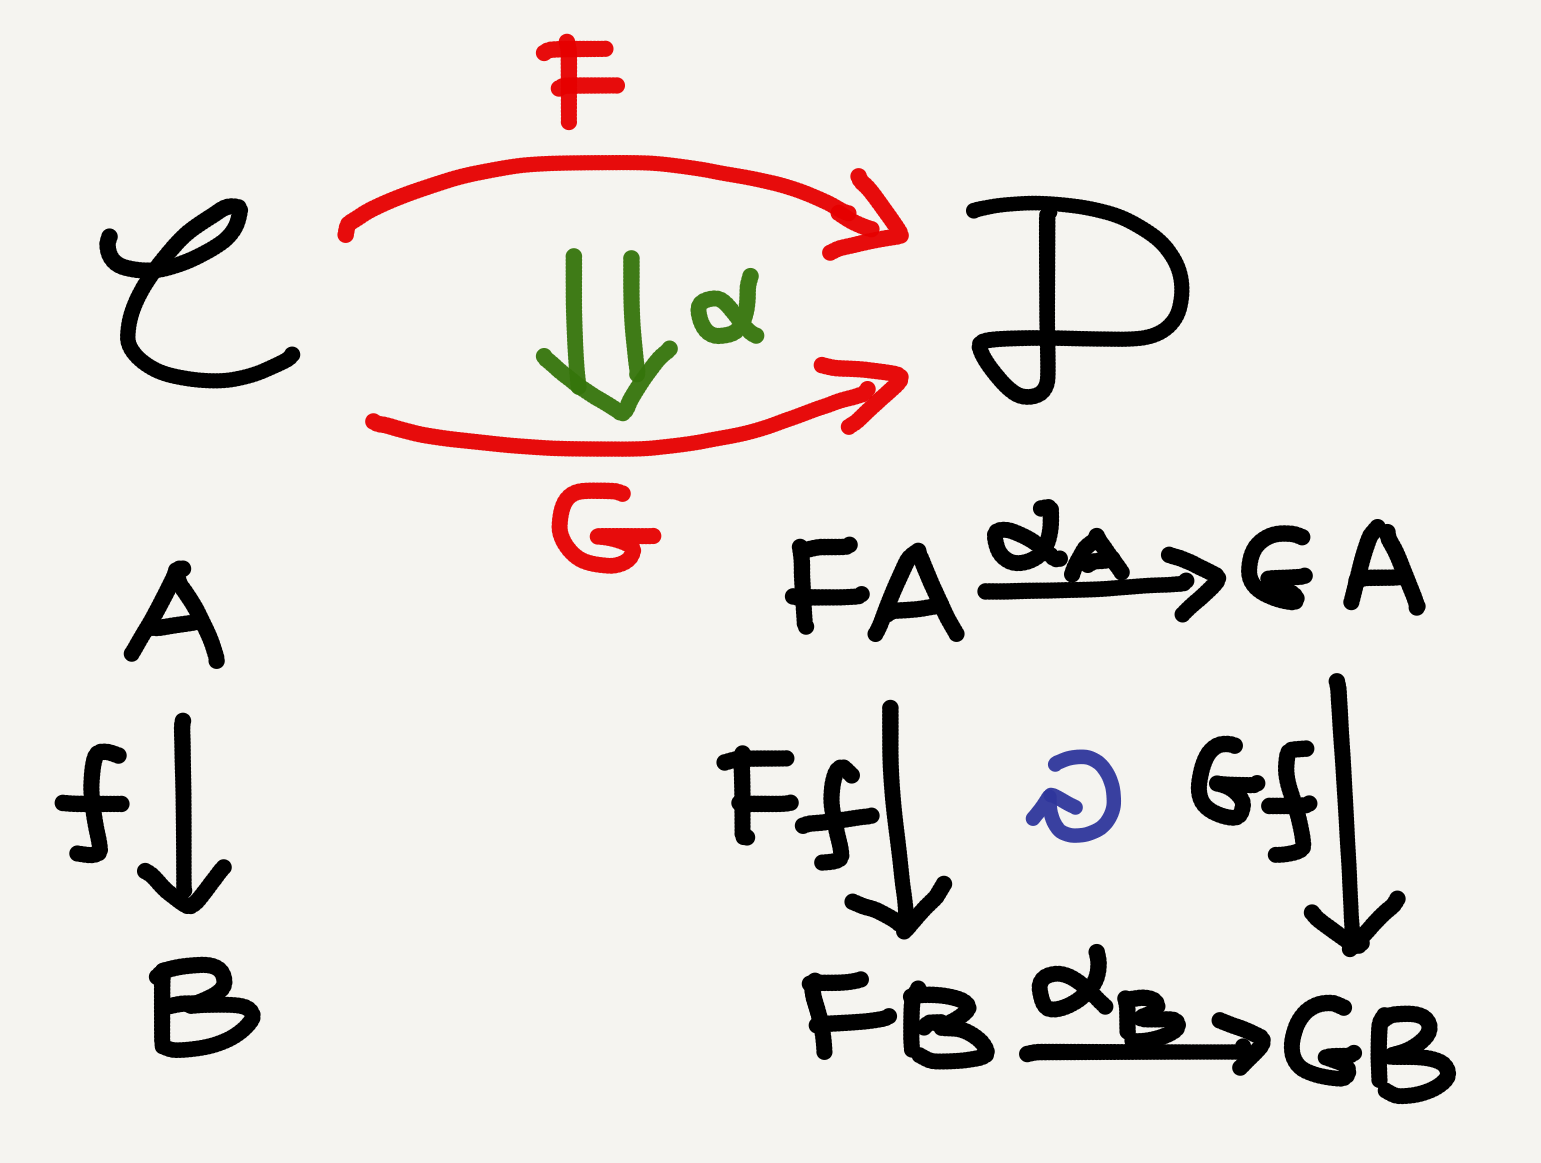 F
𝒞 α 𝒟
G
A FA α_A GA
f Ff Gf
B FB α_B GB